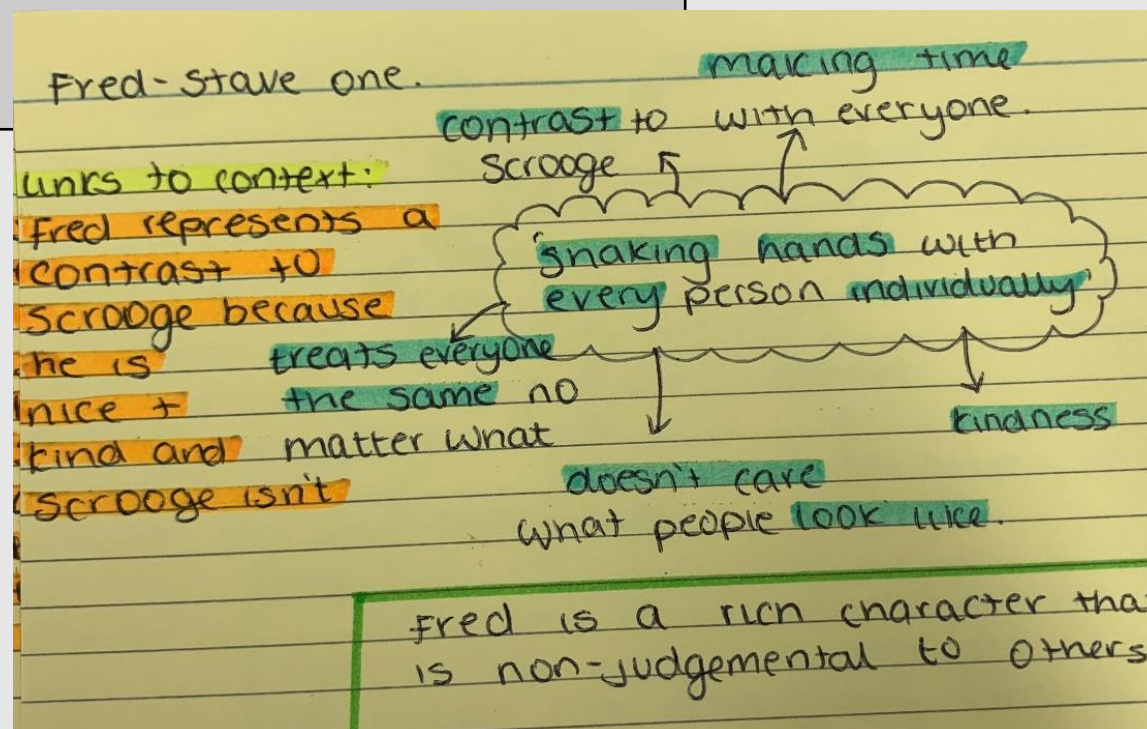 Fred - Stave one.
making time
with everyone.
contrast to
scrooge
links to context:
Fred represents a
contrast to
scrooge because
he is
nice +
kind and
scrooge isn't
'shaking hands with
every person individually'
treats everyone
the same no
matter what
doesn't care
what people look like.
kindness
Fred is a rich character that
is non-judgemental to others